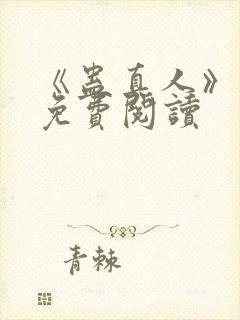 《蛊真人》
免費閱讀
青棘